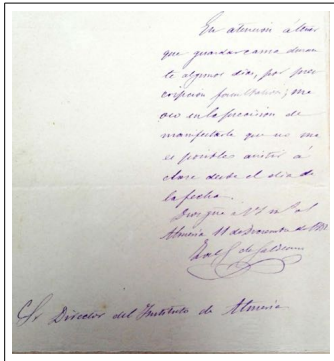 En atención a tener
que guardar cama duran
te algunos dias, por pres
cripcion facultativa; me
veo en la precision de
manifestarle que no me
es posible asistir á
clase desde el dia de
la fecha.
Dios gue á V. m. a.
Almeria 11 de de
de
Sr Director del Instituto de Almeria